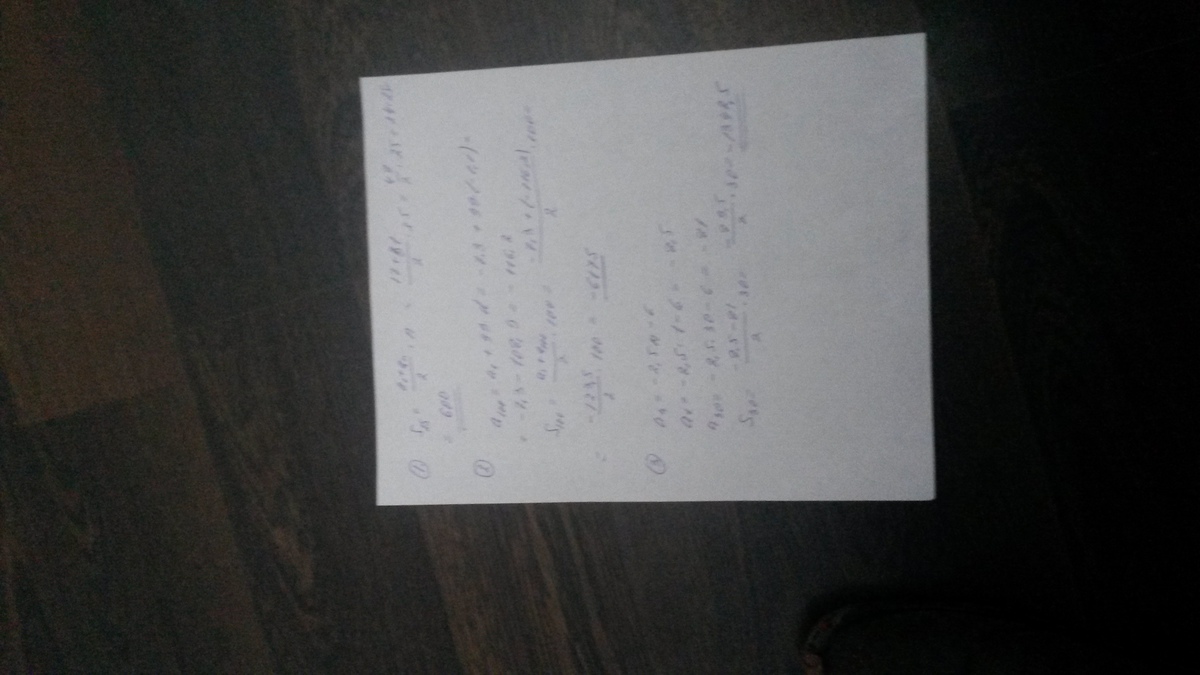 ① S₂₅ = (a₁+aₙ)/2 · n = /2 · 25 = 48/2 · 25 = 24·25
= 600
② a₁₀₀ = a₁ + 99d = -7,3 + 99(-1,1) =
= -7,3 - 108,9 = -116,2
S₁₀₀ = (a₁+a₁₀₀)/2 · 100 = (-7,3 + (-116,2))/2 · 100 =
= -123,5/2 · 100 = -6175
③ aₙ = -2,5n - 6
a₁ = -2,5 · 1 - 6 = -8,5
a₃₀ = -2,5 · 30 - 6 = -81
S₃₀ = (-8,5 - 81)/2 · 30 = -89,5/2 · 30 = -1342,5